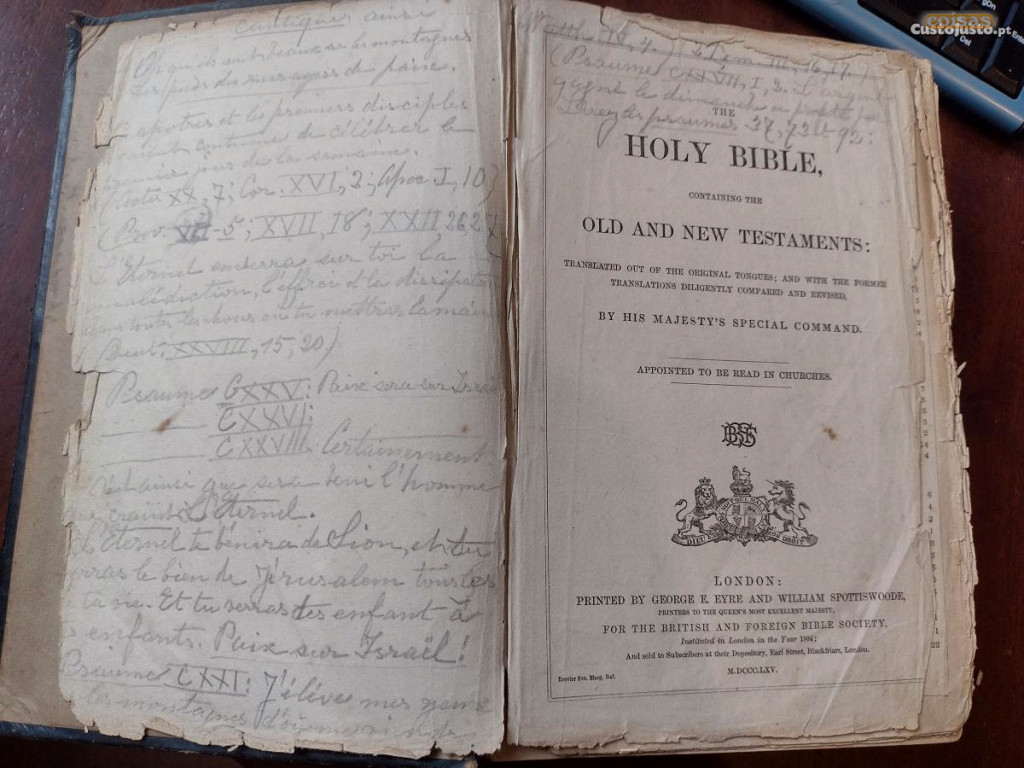 cantiques ainsi
sur les montagnes
Les pieds des messagers de paix.
apôtres et les premiers disciples
avaient coutume de célébrer le
premier jour de la semaine.
(Actes XX, 7; Cor. XVI, 2; Apoc. I, 10)
(Prov. VII-5; XVII, 18; XXII 26 27
L'Éternel enverra sur toi la
malédiction, l'effroi et la dissipation
dans toutes les choses où tu mettras la main
(Deut. XXVIII, 15, 20.)
Psaume CXXV: Paix sera sur Israël
CXXVI:
CXXVIII. Certainement
c'est ainsi que sera béni l'homme
qui craint L'Éternel.
L'Éternel te bénira de Sion, et tu
verras le bien de Jérusalem tous les
ta vie. Et tu verras des enfant à
enfants. Paix sur Israël!
Psaume CXXI: J'élève mes yeux
les montagnes d'où
Matth. IV, 4. 2 Tim III, 16, 17.)
(Psaume CXXVII, 1, 2. L'argent
gagné le dimanche ne profite pas
Lisez les psaumes 37, 73 et 92:
THE
HOLY BIBLE,
CONTAINING THE
OLD AND NEW TESTAMENTS:
TRANSLATED OUT OF THE ORIGINAL TONGUES; AND WITH THE FORMER
TRANSLATIONS DILIGENTLY COMPARED AND REVISED,
BY HIS MAJESTY'S SPECIAL COMMAND.
APPOINTED TO BE READ IN CHURCHES.
LONDON:
PRINTED BY GEORGE E. EYRE AND WILLIAM SPOTTISWOODE,
PRINTERS TO THE QUEEN'S MOST EXCELLENT MAJESTY,
FOR THE BRITISH AND FOREIGN BIBLE SOCIETY,
Instituted in London in the Year 1804;
And sold to Subscribers at their Depository, Earl Street, Blackfriars, London.
M.DCCC.LXV.
Brevier 8vo. Marg. Ref.
22
coisas
CustoJusto.pt
Del
Enter